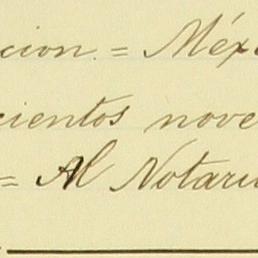 cion. = Méx
cientos nove
= Al Notari